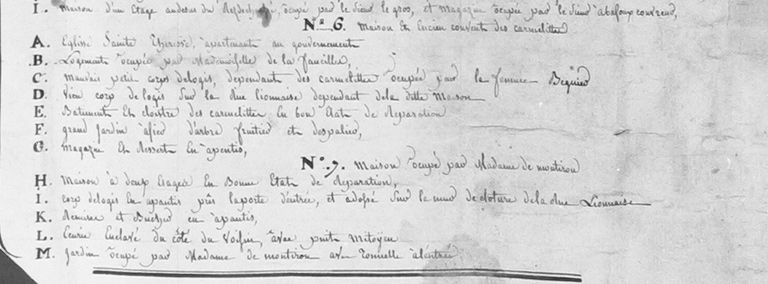 I. Maison d'un Etage audessus du Rezdechaussé, occupé par le sieur le gros, et magazin occupée par le sieur abafour couvreur,
Nº 6. Maison Et Encien couvent des carmelittes
A. Eglise Sainte appartenante au gouvernement
B. Logement occupée par Mademoiselle de la faucillee,
C. Mauvais petit corps delogis, dependant des carmelittes occupée par la femme Bequier
D. Vieu corp de logis Sur la Rue lionnaise dependant dela ditte Maison
E. Batiment Et cloitre des carmelittes En bon Etat de Reparation
F. grand Jardin d'arbre fruitier et despalier,
G. Magazin En apentis,
Nº 7. Maison occupé par Madame de montiron
H. Maison à deux Etages En Bonne Etat de Reparation,
I. corp delogis En apantis près laporte d'entrée, et adossé Sur le mur de cloture dela Rue Lionnaise
K. Remise et Bucher en apantis,
L. Ecurie Enclavé du côté du voisin, avec puits Mitoyen
M. Jardin occupé par Madame de montiron avec Tonnelle à l'entrée